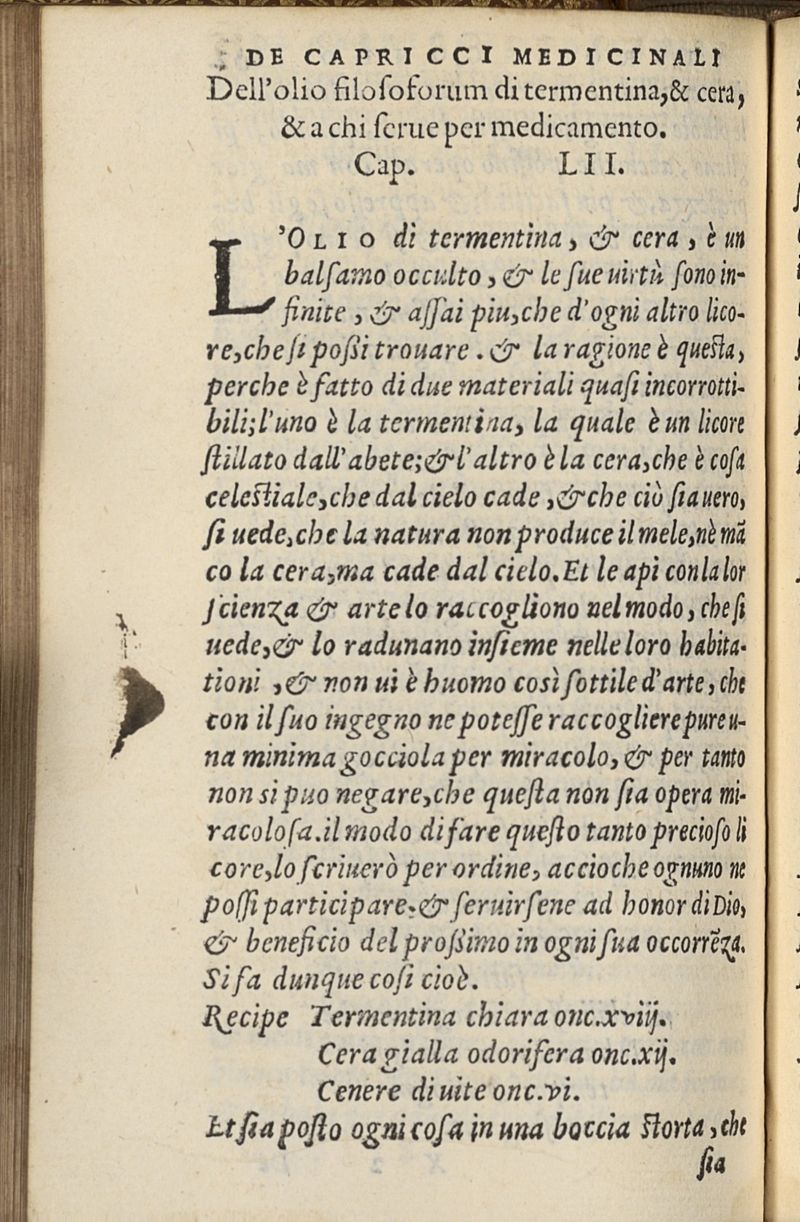 DE CAPRICCI MEDICINALI
Dell'olio filosoforum di termentina,& cera,
& a chi serue per medicamento.
Cap. LII.
L'OLIO di termentina, & cera, è un
balsamo occulto, & le sue uirtù sono in-
finite, & assai piu,che d'ogni altro lico-
re,che si possi trouare. & la ragione è questa,
perche è fatto di due materiali quasi incorrotti-
bili;l'uno è la termentina, la quale è un licore
stillato dall'abete;& l'altro è la cera,che è cosa
celestiale,che dal cielo cade,& che ciò sia uero,
si uede,che la natura non produce il mele,nè mā
co la cera,ma cade dal cielo.Et le api con la lor
scienza & arte lo raccogliono nel modo, che si
uede,& lo radunano insieme nelle loro habita-
tioni ,& non ui è huomo così sottile d'arte, che
con il suo ingegno ne potesse raccogliere pure u-
na minima gocciola per miracolo, & per tanto
non si puo negare,che questa non sia opera mi-
racolosa.il modo di fare questo tanto precioso li
core,lo scriuerò per ordine, accioche ognuno ne
possi participare,& seruirsene ad honor di Dio,
& beneficio del prossimo in ogni sua occorrēza.
Si fa dunque cosi cioè.
Recipe Termentina chiara onc.xviij.
Cera gialla odorifera onc.xij.
Cenere di uite onc.vi.
Et sia posto ogni cosa in una boccia storta, che
sia